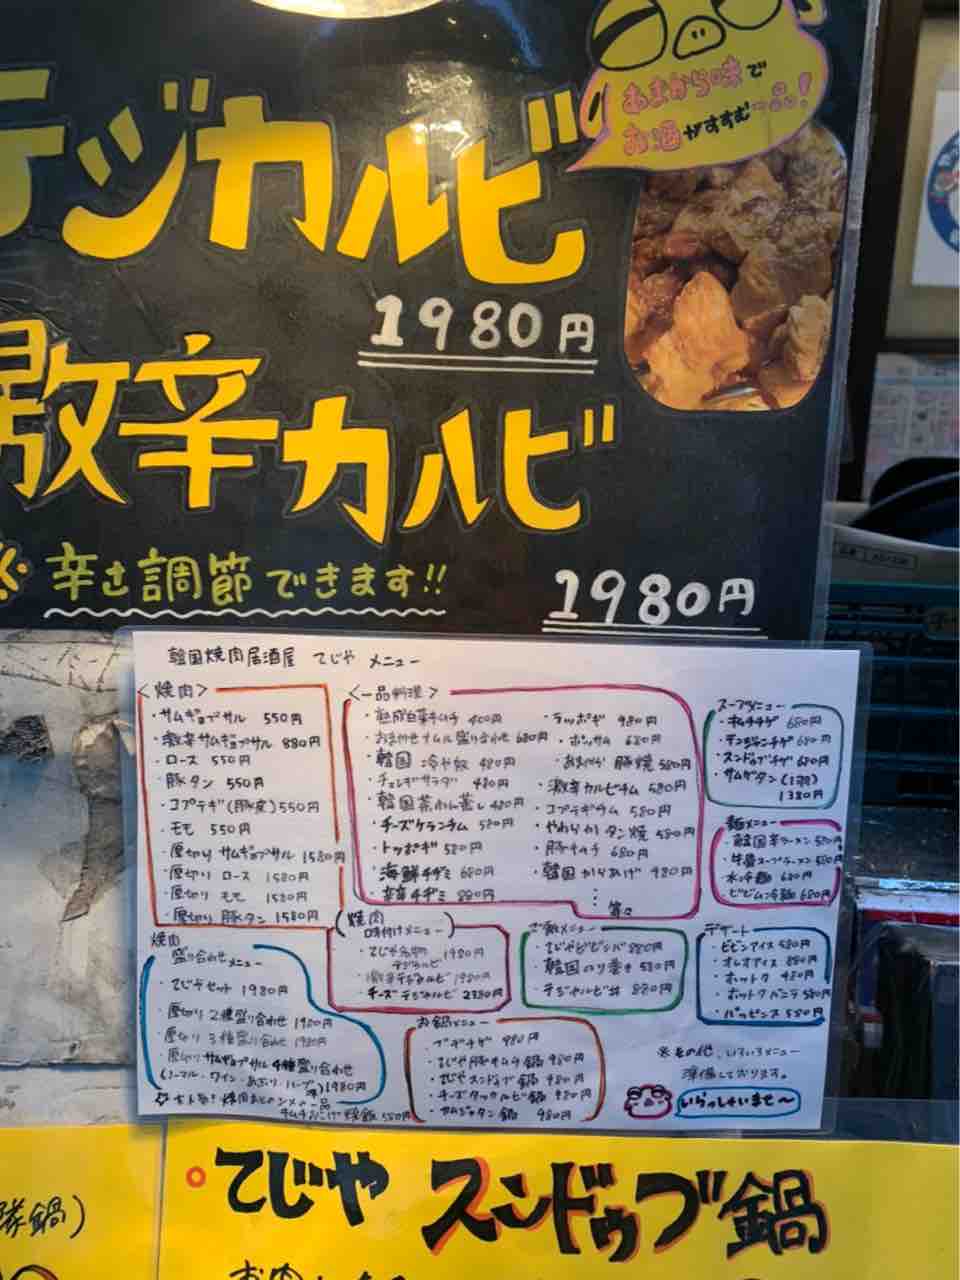 テジカルビ
あまから味で
お酒がすすむ一品!
1980円
激辛カルビ
※辛さ調節できます!!
1980円
韓国焼肉居酒屋 てじや メニュー
<焼肉>
・サムギョプサル 550円
・激辛サムギョプサル 880円
・ロース 550円
・豚タン 550円
・コプテギ(豚皮)550円
・モモ 550円
・厚切りサムギョプサル 1580円
・厚切り ロース 1580円
・厚切り モモ 1580円
・厚切り 豚タン 1580円
<一品料理>
・熟成白菜キムチ 400円
・おまかせナムル盛り合わせ 680円
・韓国 冷や奴 480円
・チョレギサラダ 480円
・韓国茶わん蒸し 480円
・チーズケランチム 580円
・トッポギ 580円
・海鮮チヂミ 680円
・辛辛チヂミ 880円
・ラッポギ 980円
・ポッサム 680円
・豚焼 580円
・激辛カルビチム 580円
・コプテギチム 580円
・やわらかタン焼 580円
・豚キムチ 680円
・韓国からあげ 980円
等々
スープメニュー
・キムチチゲ 680円
・テンジャンチゲ 680円
・スンドゥブチゲ 680円
・サムゲタン(1羽)
1380円
麺メニュー
・韓国辛ラーメン 580円
・牛骨スープラーメン 580円
・水冷麺 680円
・ビビム冷麺 680円
焼肉
盛り合わせメニュー
・てじやセット 1980円
・厚切り2種盛り合わせ 1980円
・厚切り3種盛り合わせ 1980円
・厚切りサムギョプサル4種盛り合わせ
(ノーマル・ワイン・あぶり・ハーブ)1980円
キムチおこげ焼飯 550円
(焼肉
味付けメニュー)
・てじや名物
デジカルビ 1980円
・激辛デジカルビ 1980円
・チーズデジカルビ 2380円
ご飯メニュー
・てじやビビンバ 880円
・韓国のり巻き 580円
・テジカルビ丼 880円
デザート
・ビビンアイス 580円
・オレオアイス 880円
・ホットク 480円
・ホットクバニラ 580円
・パッピンス 580円
お鍋メニュー
・プデチゲ 980円
・てじや豚キムチ鍋 980円
・てじやスンドゥブ鍋 980円
・チーズタッカルビ鍋 980円
・カムジャタン鍋 980円
※その他、いろいろメニュー
準備しております。
いらっしゃいませ〜
隊鍋)
てじや スンドゥブ鍋